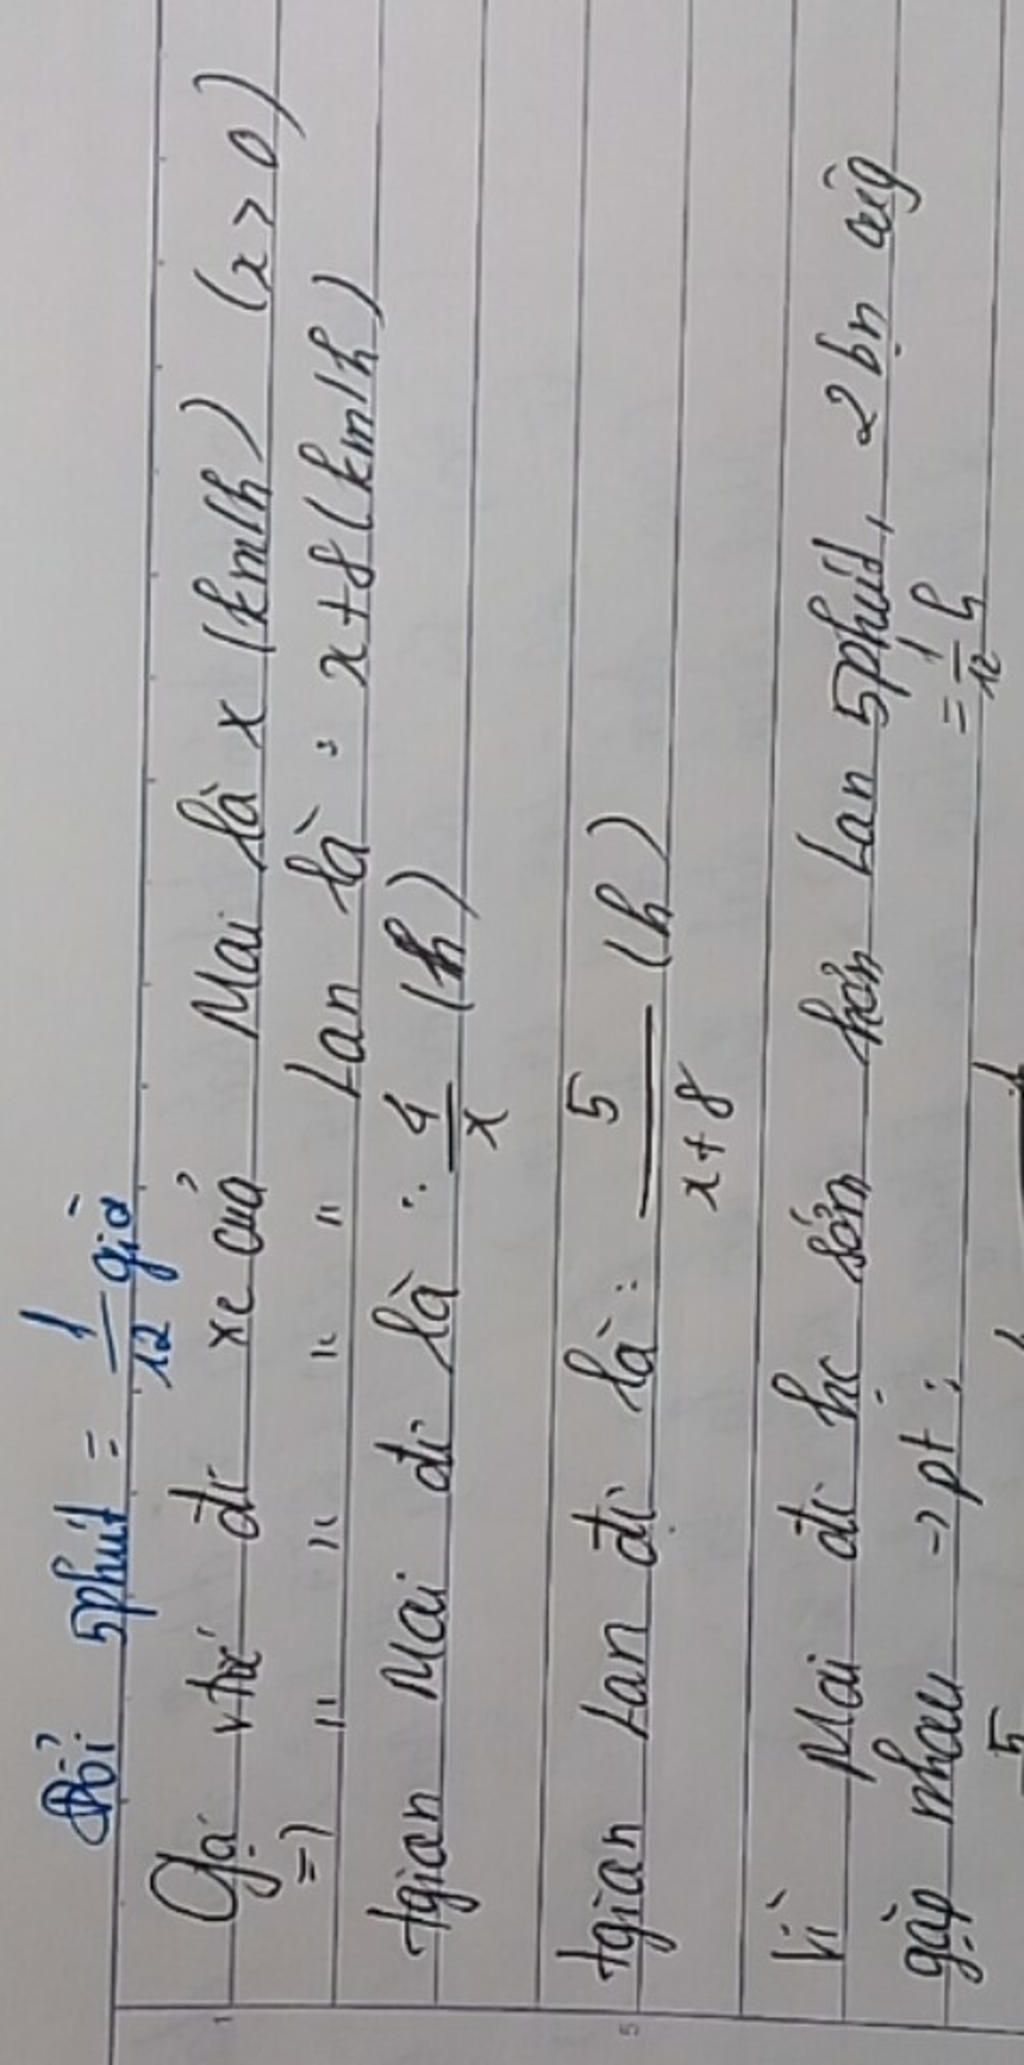 Đổi 5phút = 1/12 giờ
Gọi vtốc đi xe của Mai là x (km/h) (x > 0)
=> " " " " Lan là : x+8 (km/h)
tgian Mai đi là : 4/x (h)
tgian Lan đi là : 5/x+8 (h)
Vì Mai đi hc sớm hơn Lan 5phút, 2 bạn cùg
= 1/12 h
gặp nhau -> pt :
5